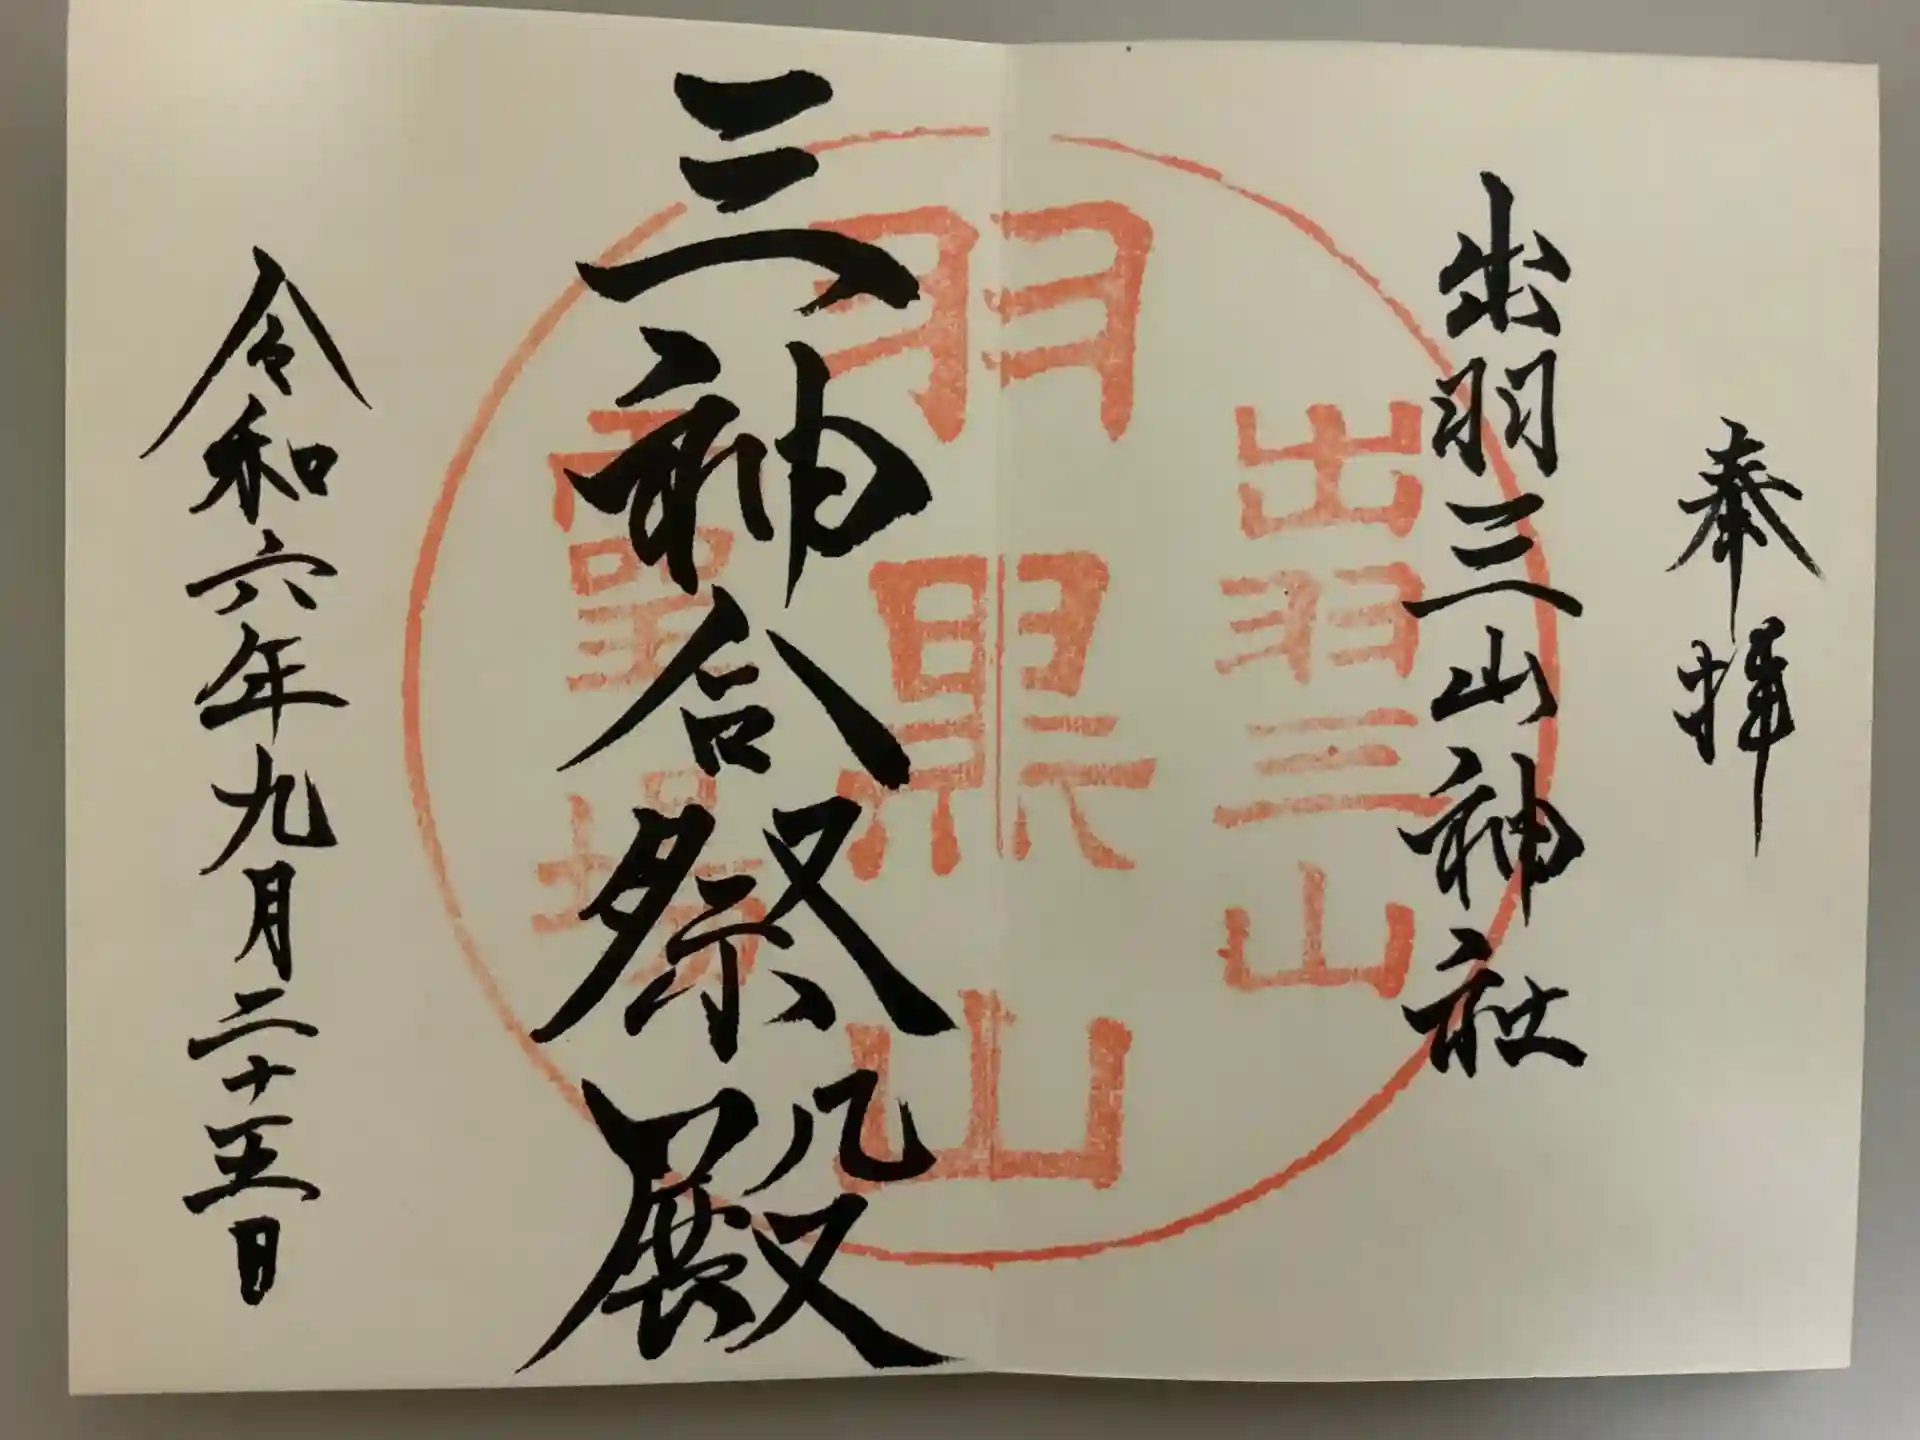 奉拝
出羽三山神社
出羽三山
羽黒山
三神合祭殿
令和六年九月二十五日